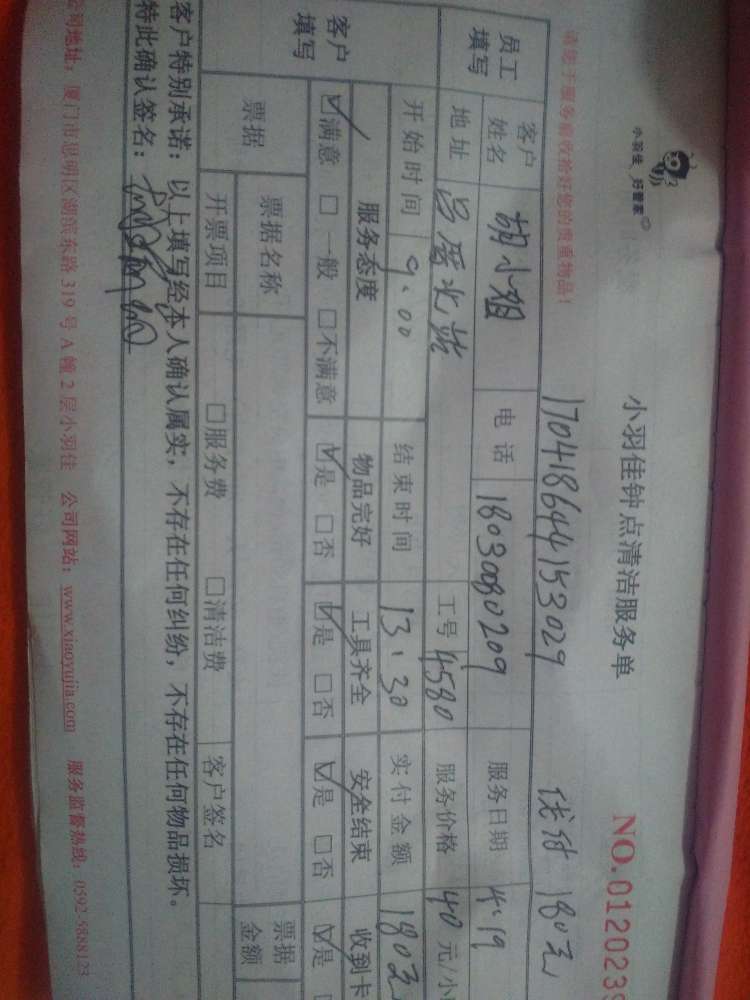 小羽佳 好管家
小羽佳钟点清洁服务单
NO.012023
请您于服务前收拾好您的贵重物品！
170418644153029
180元
员工填写
客户姓名 胡小姐 电话 18030080209 服务日期 4.19
地址 吕厝北站 工号 4580 服务价格 40 元/小
客户填写
开始时间 9:00 结束时间 13:30 实付金额 180元
服务态度 物品完好 工具齐全 安全结束 收到卡
☑满意 □一般 □不满意 ☑是 □否 ☑是 □否 ☑是 □否 ☑是
票据 票据名称 票据金额
开票项目 □服务费 □清洁费 客户签名
客户特别承诺：以上填写经本人确认属实，不存在任何纠纷，不存在任何物品损坏。
特此确认签名：
公司地址：厦门市思明区湖滨东路 319 号 A 幢 2 层小羽佳 公司网站：www.xiaoyujia.com 服务监督热线：0592-5888123